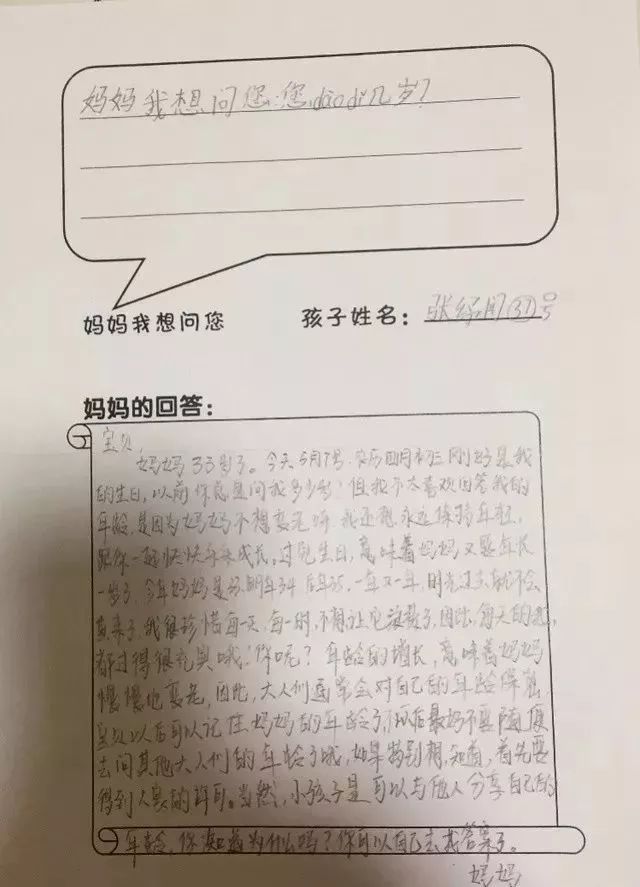 妈妈我想问您:您dào dǐ几岁?
妈妈我想问您
孩子姓名:张 ㉛号
妈妈的回答:
宝贝,
妈妈33岁了。今天5月7号,农历四月初三刚好是我
的生日,以前你总是问我多少岁?但我不太喜欢回答我的
年龄,是因为妈妈不想变老呀,我还想永远保持年轻,
跟你一起快快乐乐成长。过完生日,意味着妈妈又要年长
一岁了,今年妈妈是33,明年34,后年35,一年又一年,时光过去就不会
回来了,我很珍惜每一天,每一时,不想让它浪费了,因此,每天的我,
都过得很充实哦!你呢?年龄的增长,意味着妈妈
慢慢地变老,因此,大人们通常会对自己的年龄保密,
宝贝以后可以记住妈妈的年龄了,以后最好不要随便
去问其他大人们的年龄了哦,如果特别想知道,首先要
得到人家的许可。当然,小孩子是可以与他人分享自己的
年龄,你知道为什么吗?你可以自己去找答案了。
妈妈